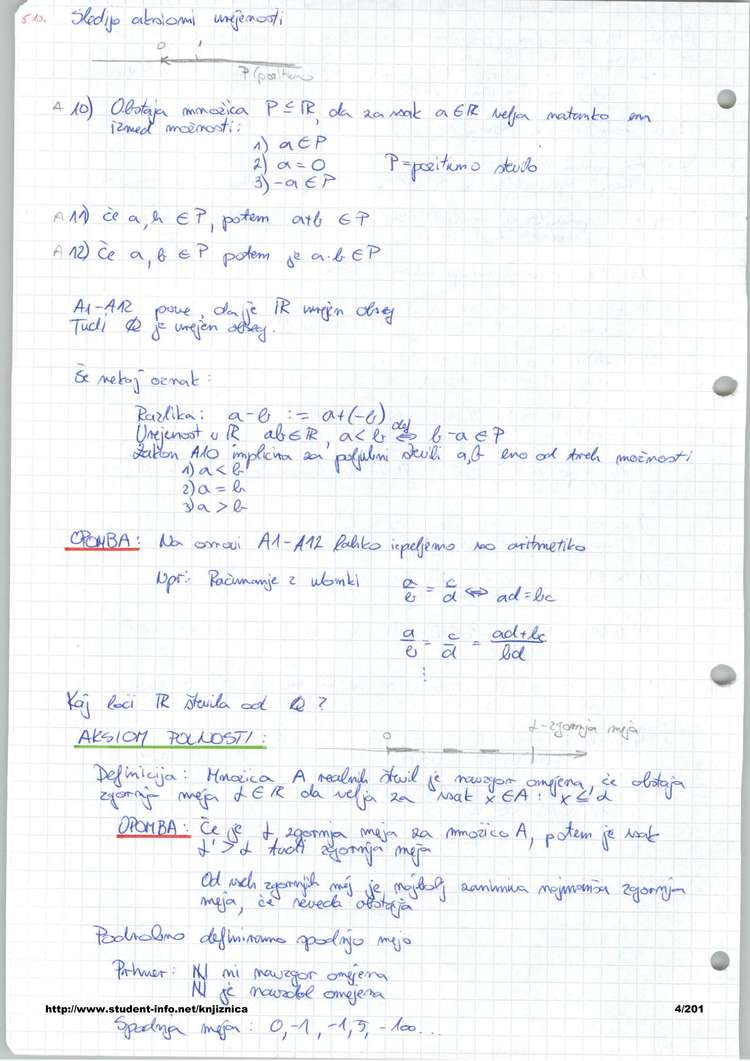 5.10. Sledijo aksiomi urejenosti
0 1
P (pozitivna)
A 10) Obstaja množica P ⊆ IR, da za vsak a ∈ IR velja natanko ena
izmed možnosti:
1) a ∈ P
2) a = 0 P = pozitivno število
3) -a ∈ P
A 11) če a, b ∈ P, potem a+b ∈ P
A 12) Če a, b ∈ P potem je a·b ∈ P
A1-A12 pove, da je IR urejen obseg
Tudi Q je urejen obseg.
Še nekaj oznak:
Razlika: a-b := a+(-b)
Urejenost v IR ab ∈ IR, a < b def ⇔ b-a ∈ P
Zakon A10 implicira za poljubni števili a,b eno od treh možnosti
1) a < b
2) a = b
3) a > b
OPOMBA: Na osnovi A1-A12 lahko izpeljemo vso aritmetiko
Npr.: Računanje z ulomki a/b = c/d ⇔ ad = bc
a/b - c/d = ad+bc/bd
⋮
Kaj loči IR števila od Q?
AKSIOM POLNOSTI:
0 α - zgornja meja
Definicija: Množica A realnih števil je navzgor omejena, če obstaja
zgornja meja α ∈ IR da velja za vsak x ∈ A: x ≤ α
OPOMBA: Če je α zgornja meja za množico A, potem je vsak
α' > α tudi zgornja meja
Od vseh zgornjih mej je najbolj zanimiva najmanjša zgornja
meja, če seveda obstaja
Podrobno definiramo spodnjo mejo
Primer: IN ni navzgor omejena
IN je navzdol omejena
http://www.student-info.net/knjiznica 4/201
Spodnja meja: 0, -1, -1,5, -100...